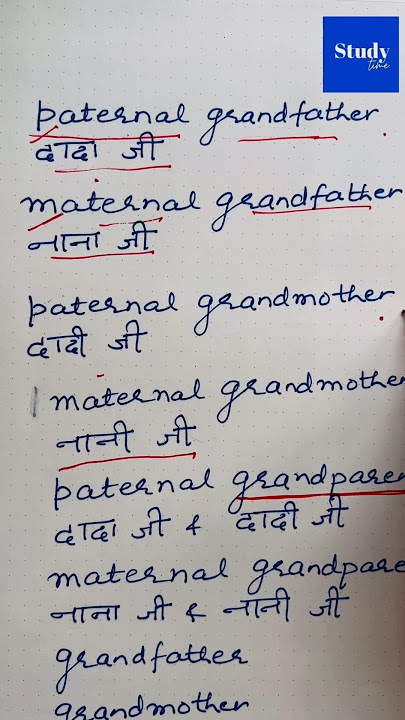 Study
time
paternal grandfather
दादा जी
maternal grandfather
नाना जी
paternal grandmother
दादी जी
maternal grandmothe
नानी जी
paternal grandpare
दादा जी & दादी जी
maternal grandpare
नाना जी & नानी जी
grandfather
grandmother